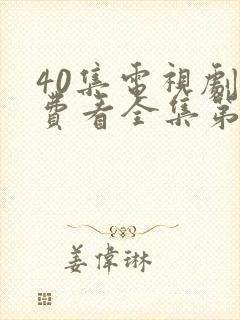 40集電視劇
費看全集第
姜偉琳